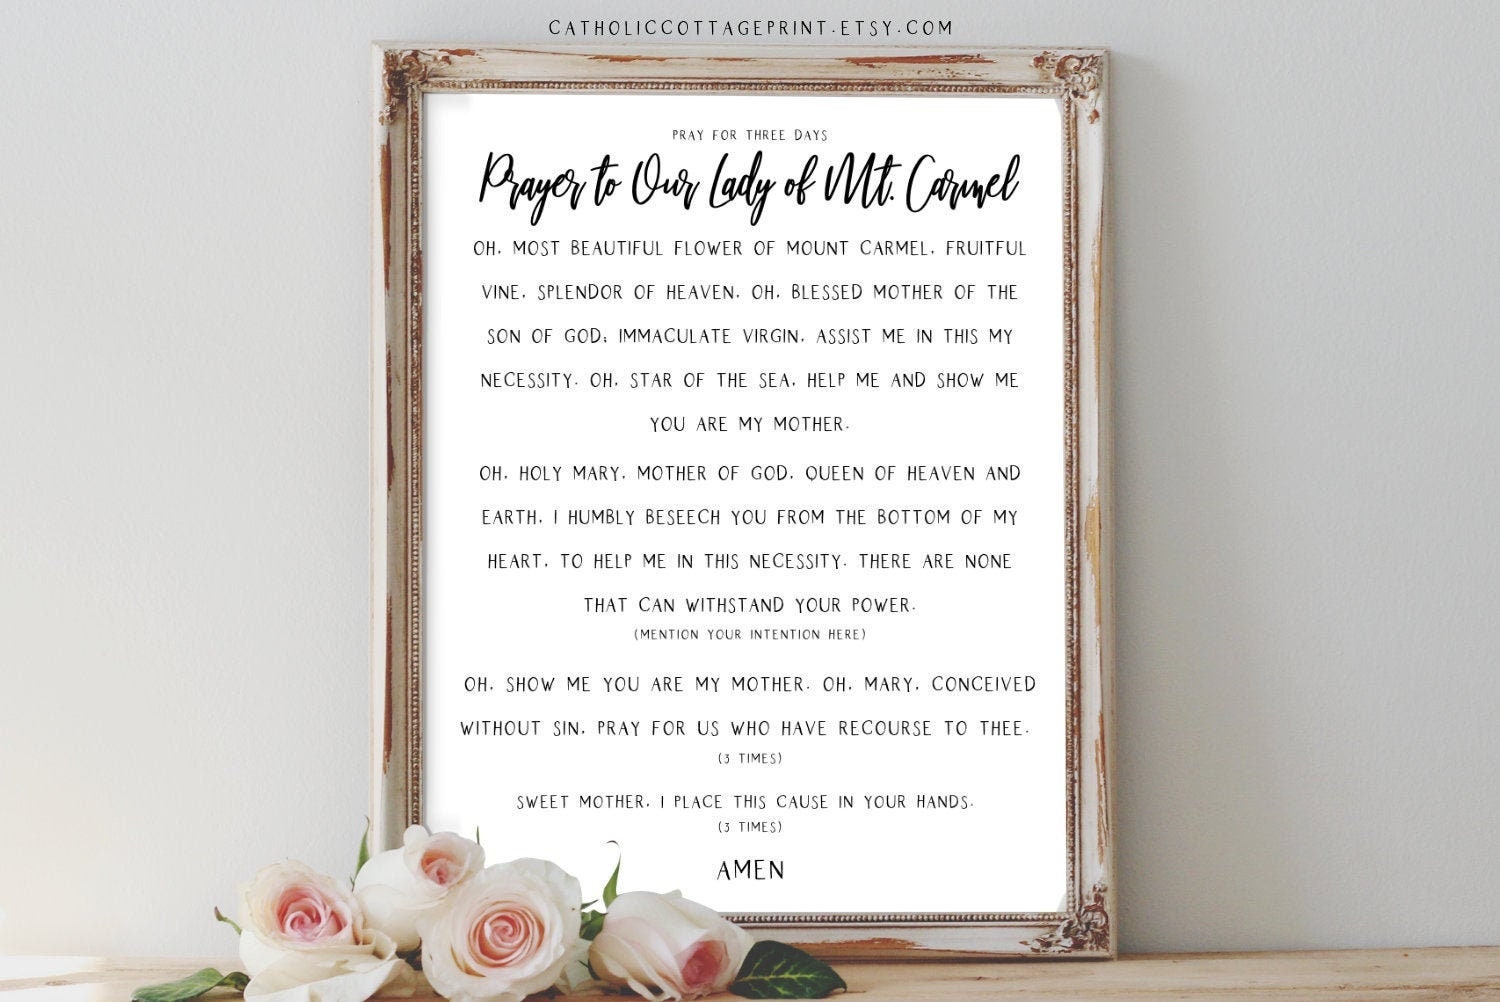 CATHOLICCOTTAGEPRINT.ETSY.COM
PRAY FOR THREE DAYS
Prayer to Our Lady of Mt. Carmel
OH, MOST BEAUTIFUL FLOWER OF MOUNT CARMEL, FRUITFUL
VINE, SPLENDOR OF HEAVEN, OH, BLESSED MOTHER OF THE
SON OF GOD; IMMACULATE VIRGIN, ASSIST ME IN THIS MY
NECESSITY. OH, STAR OF THE SEA, HELP ME AND SHOW ME
YOU ARE MY MOTHER.
OH, HOLY MARY, MOTHER OF GOD, QUEEN OF HEAVEN AND
EARTH, I HUMBLY BESEECH YOU FROM THE BOTTOM OF MY
HEART, TO HELP ME IN THIS NECESSITY. THERE ARE NONE
THAT CAN WITHSTAND YOUR POWER.
(MENTION YOUR INTENTION HERE)
OH, SHOW ME YOU ARE MY MOTHER. OH, MARY, CONCEIVED
WITHOUT SIN, PRAY FOR US WHO HAVE RECOURSE TO THEE.
(3 TIMES)
SWEET MOTHER, I PLACE THIS CAUSE IN YOUR HANDS.
(3 TIMES)
AMEN